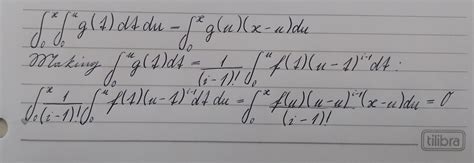 ∫₀ˣ∫₀ᵘ g(t) dt du - ∫₀ˣ g(u)(x-u)du
Making ∫₀ᵘ g(t)dt = 1/(i-1)! ∫₀ᵘ f(t)(u-t)ⁱ⁻¹dt:
∫₀ˣ 1/(i-1)! ∫₀ᵘ f(t)(u-t)ⁱ⁻¹dt du = ∫₀ˣ f(u)(u-u)ⁱ⁻¹(x-u)du/(i-1)! = 0
tilibra